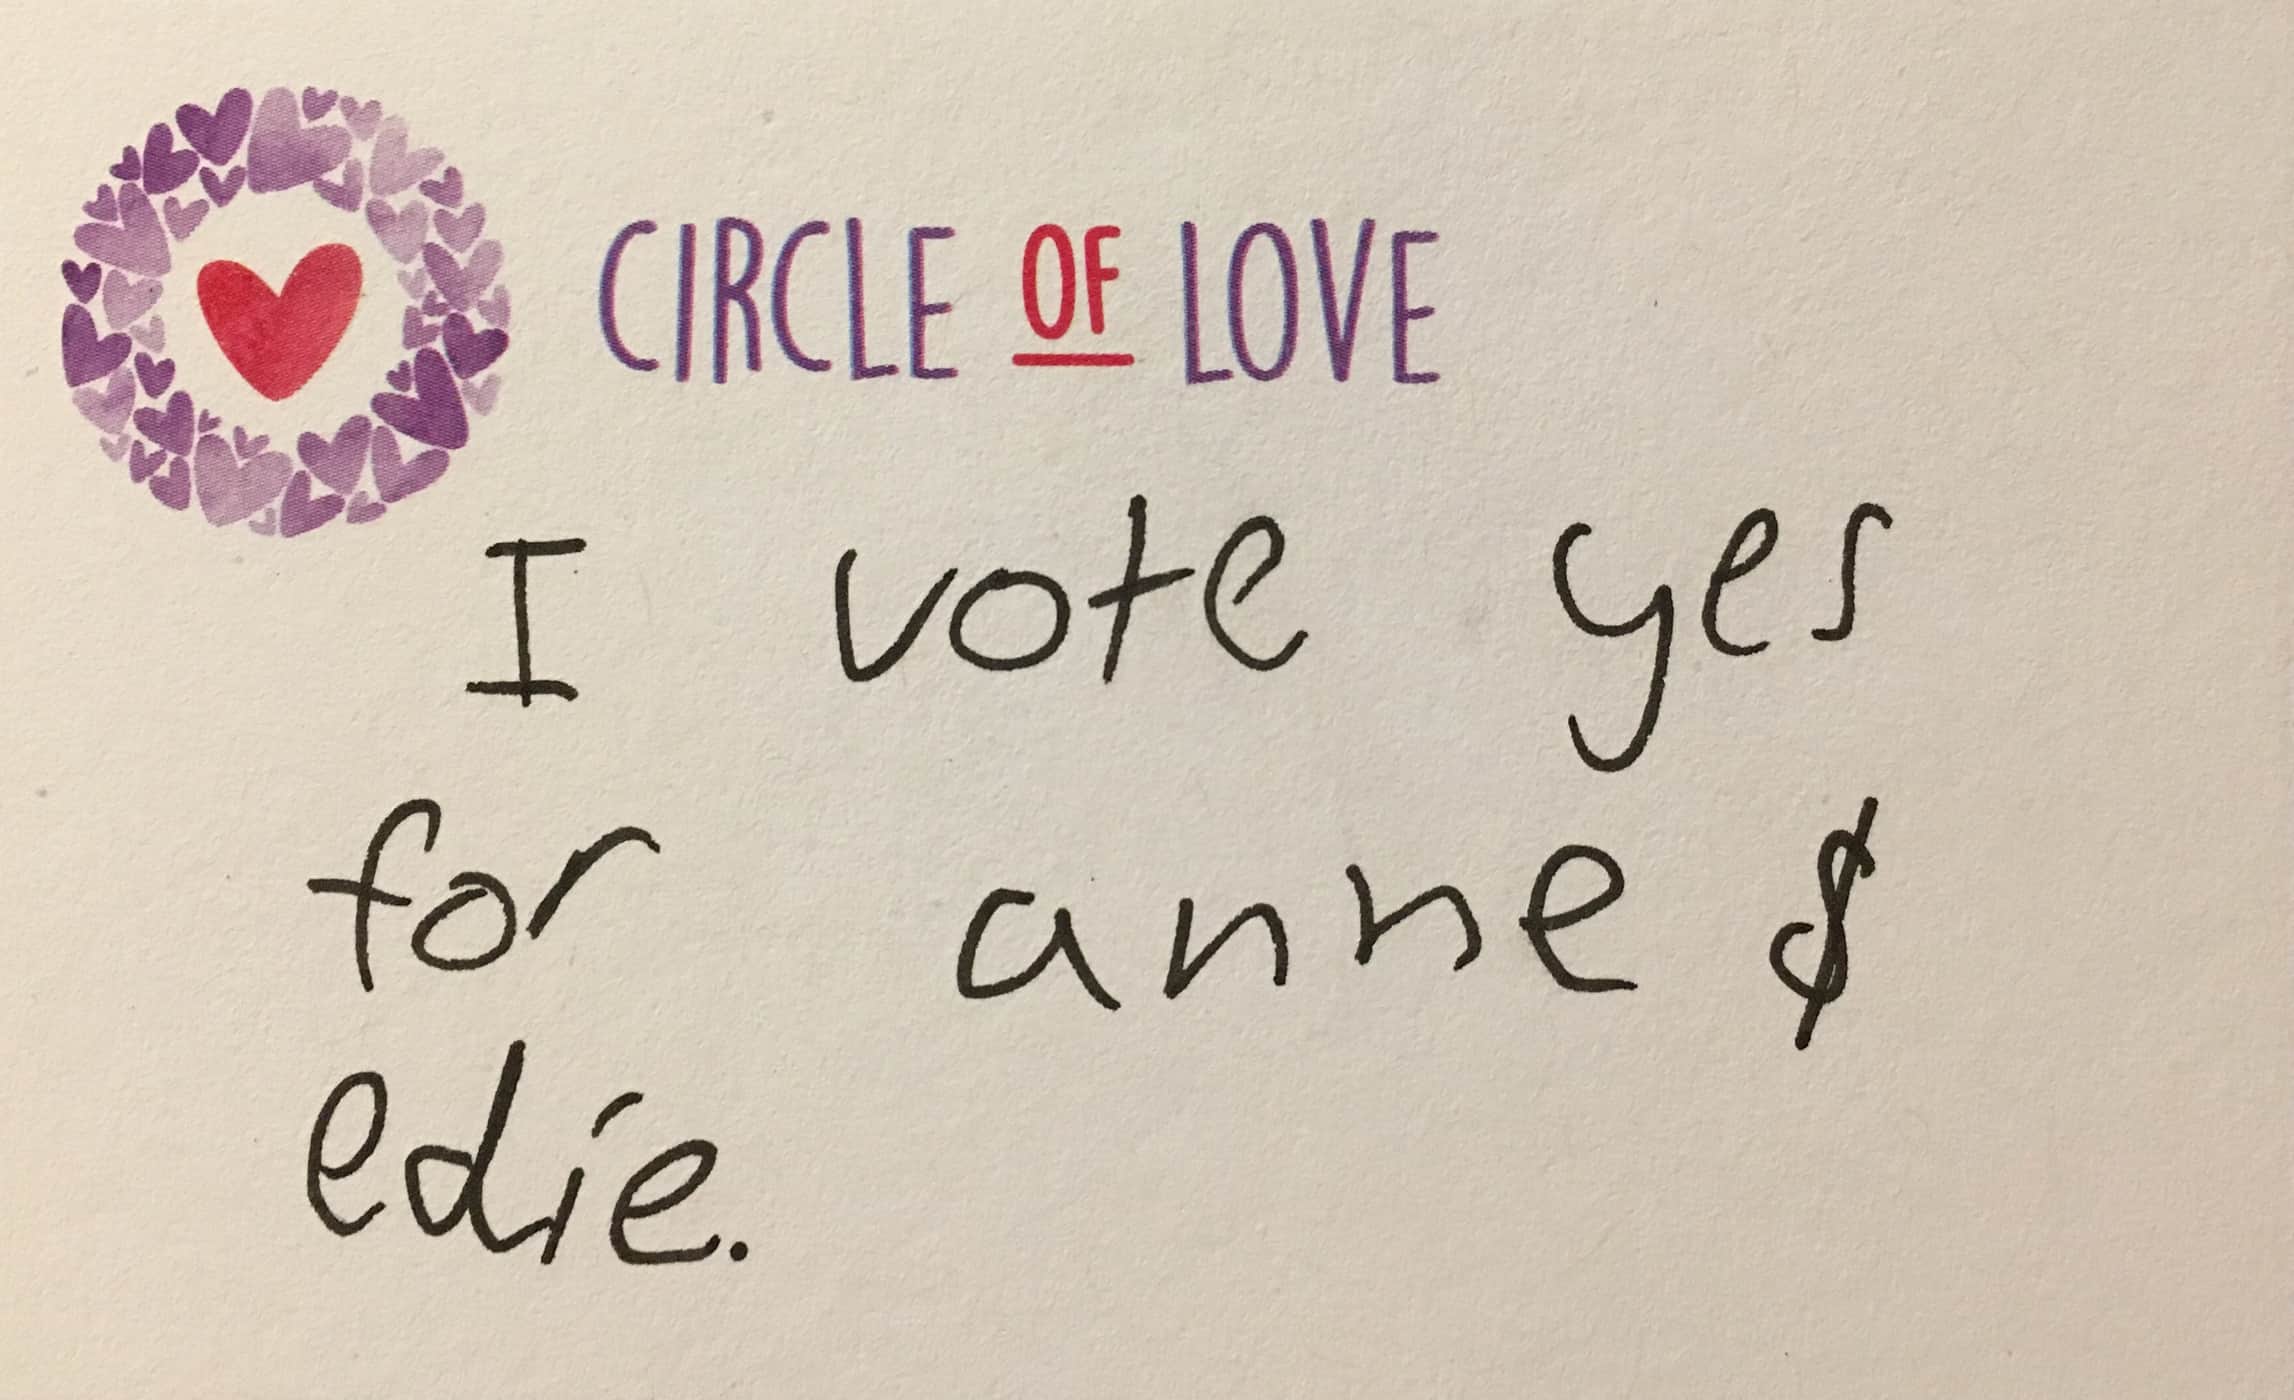 CIRCLE OF LOVE
I vote yes
for anne &
edie.